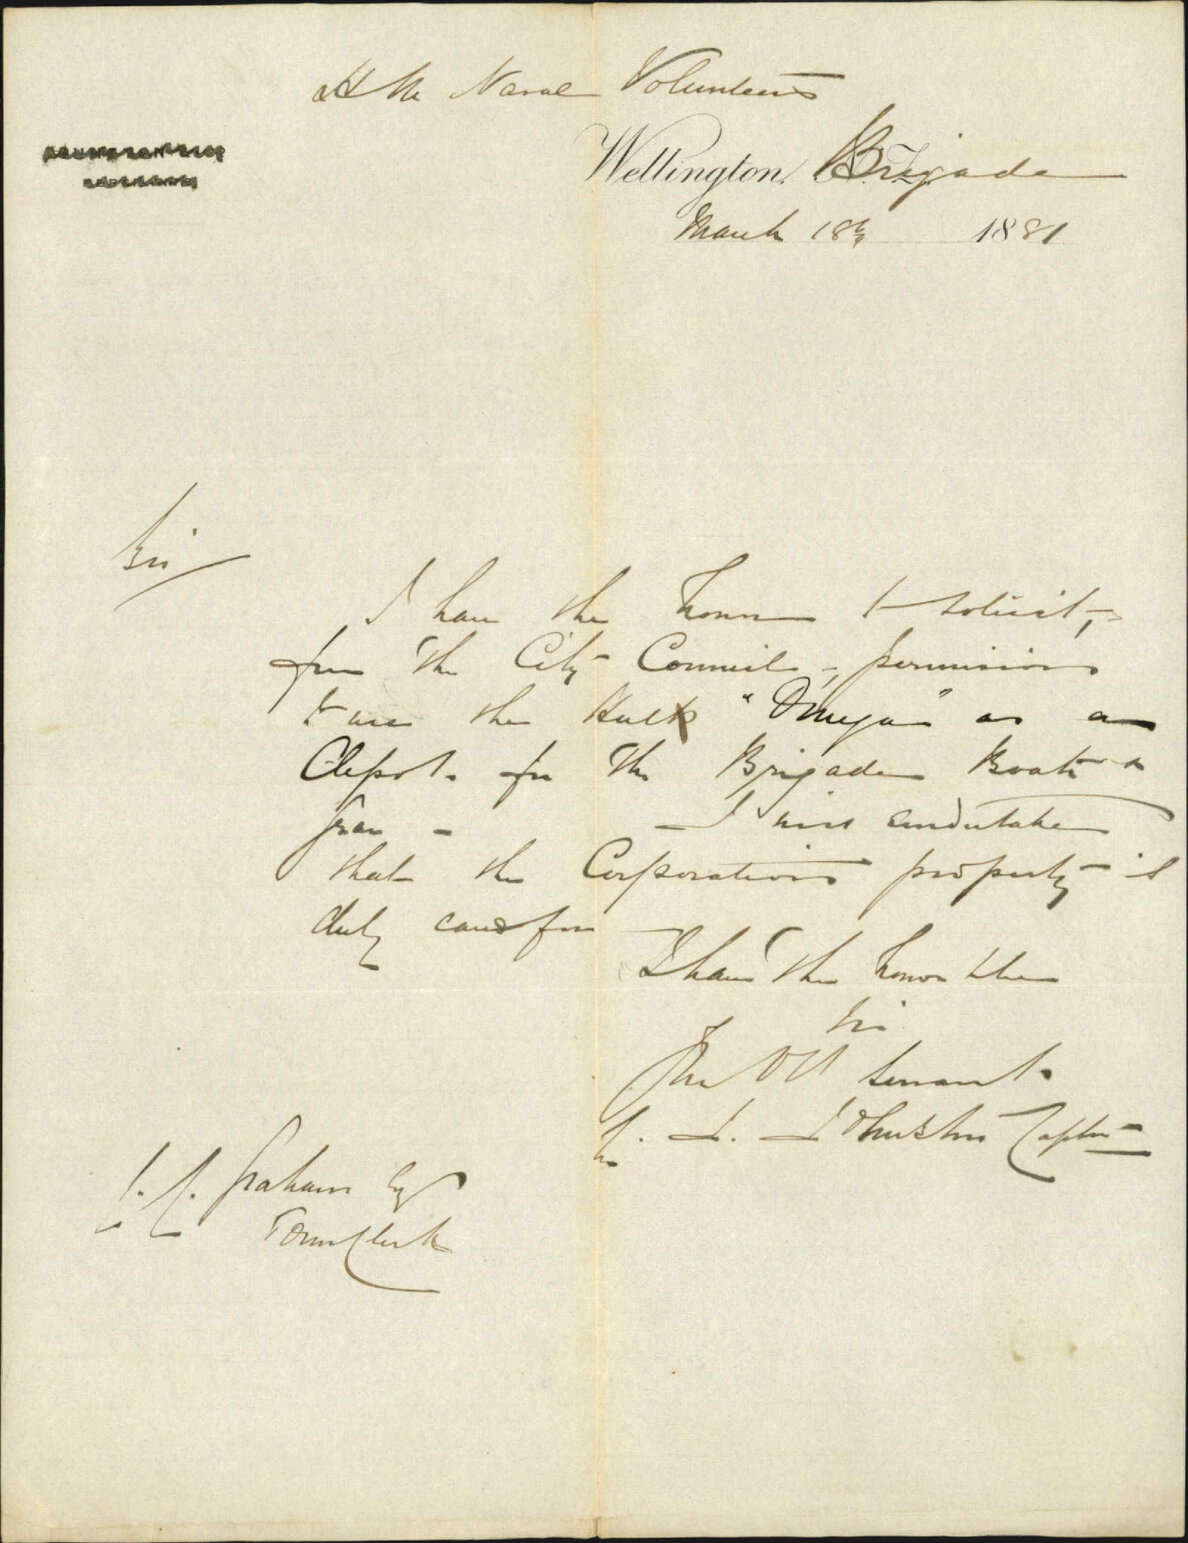 Naval Volunteers
Wellington, Brigade
March 18th 1881
Sir
I have the honor to solicit,
from the City Council, permission
to use the Hulk "Omega" as a
Depot for the Brigade Boats &
gear - I will undertake
that the Corporations property is
duly cared for
I have the honor to be
Sir
Your Obt servant
Johnston Captn
Graham Esq
Town Clerk